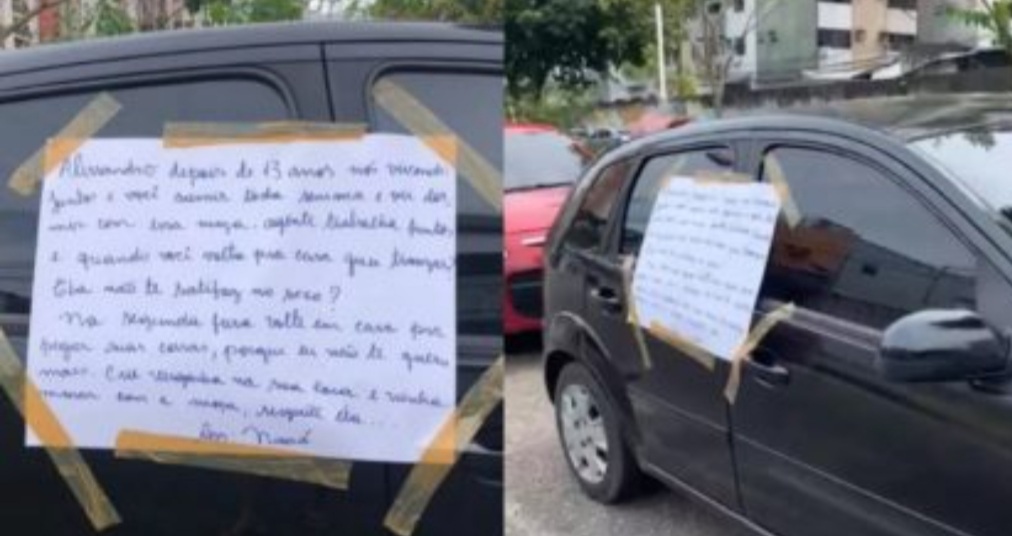 Alessandro depois de 13 anos nós vivendo
juntos e você sumir toda semana e vir dor
mir com essa moça. agente trabalha junto
e quando você volta pra casa quer transar
Ela não te satifaz no sexo?
Na segunda feira volte em casa pra
pegar suas coisas, porque eu não te quero
mais. Crie vergonha na sua cara e venha
morar com a moça, respeite ela...